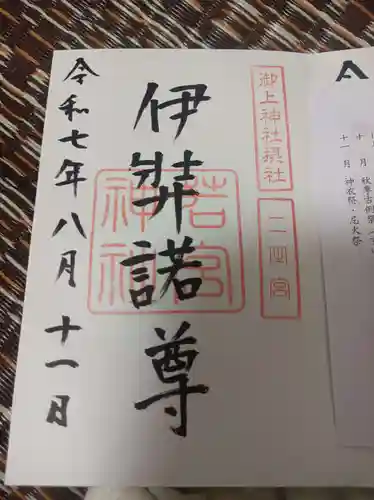 御上神社摂社
伊弉諾尊
若宮
神社
令和七年八月十一日
十月 秋季古例祭
十一月 神衣祭・